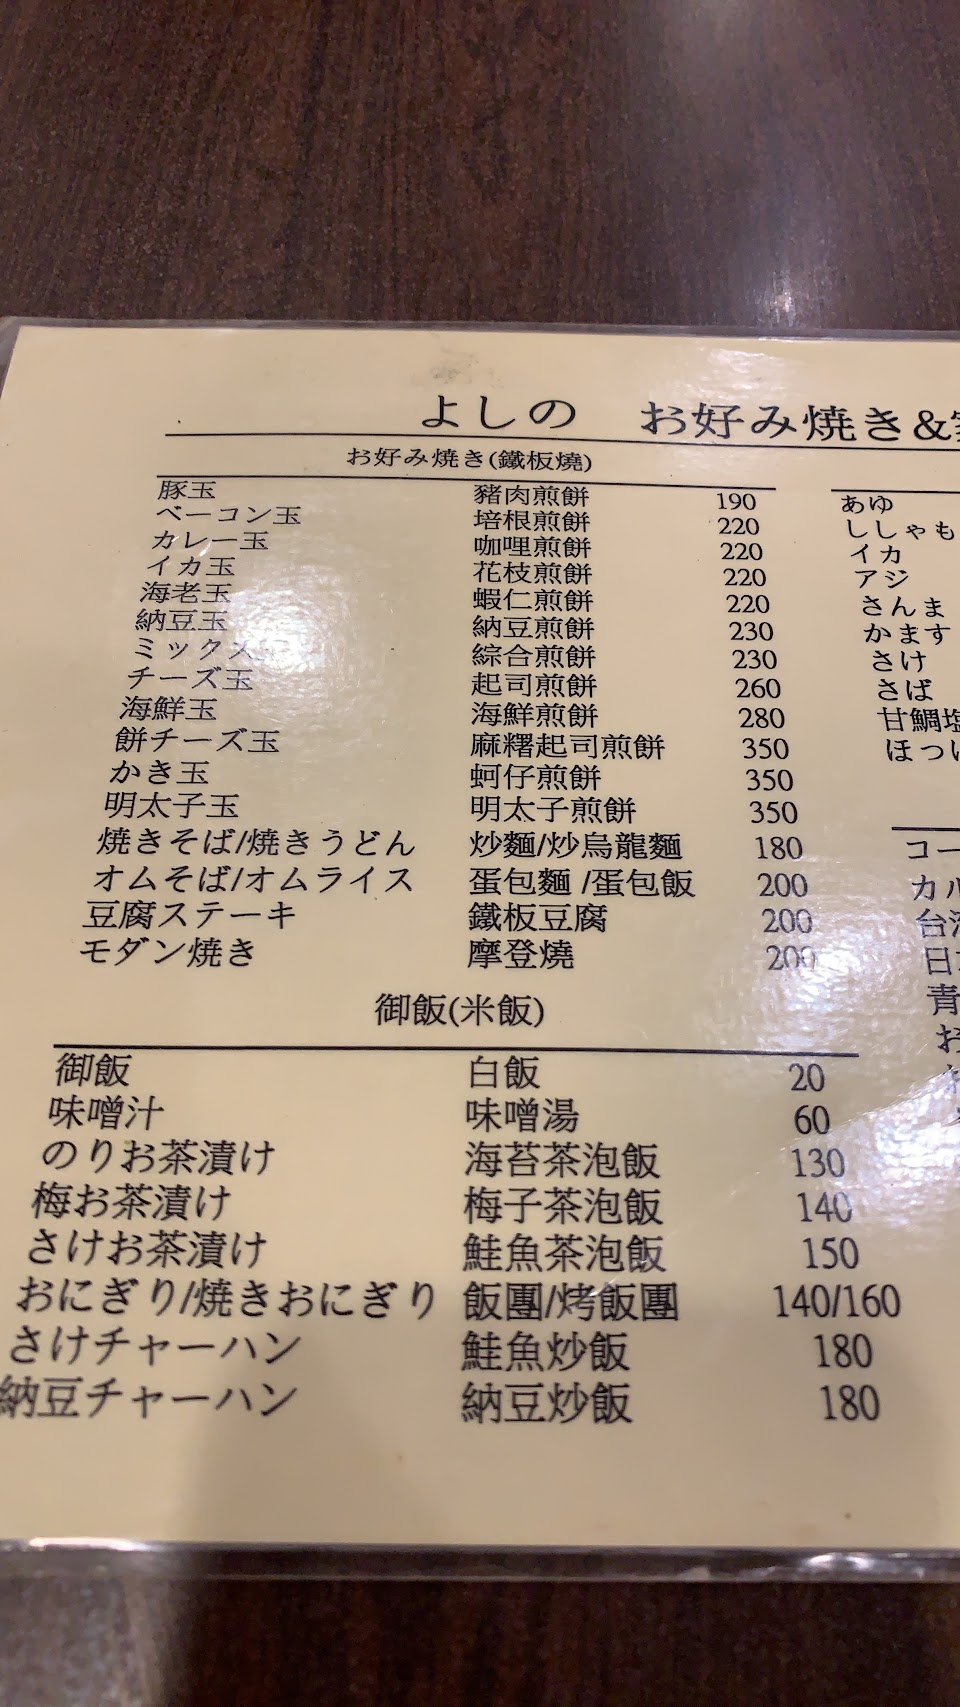 よしの お好み焼き&
お好み焼き(鐵板燒)
豚玉 豬肉煎餅 190
ベーコン玉 培根煎餅 220
カレー玉 咖哩煎餅 220
イカ玉 花枝煎餅 220
海老玉 蝦仁煎餅 220
納豆玉 納豆煎餅 230
ミックス 綜合煎餅 230
チーズ玉 起司煎餅 260
海鮮玉 海鮮煎餅 280
餅チーズ玉 麻糬起司煎餅 350
かき玉 蚵仔煎餅 350
明太子玉 明太子煎餅 350
焼きそば/焼きうどん 炒麵/炒烏龍麵 180
オムそば/オムライス 蛋包麵 /蛋包飯 200
豆腐ステーキ 鐵板豆腐 200
モダン焼き 摩登燒 200
御飯(米飯)
御飯 白飯 20
味噌汁 味噌湯 60
のりお茶漬け 海苔茶泡飯 130
梅お茶漬け 梅子茶泡飯 140
さけお茶漬け 鮭魚茶泡飯 150
おにぎり/焼きおにぎり 飯團/烤飯團 140/160
さけチャーハン 鮭魚炒飯 180
納豆チャーハン 納豆炒飯 180
あゆ
ししゃも
イカ
アジ
さんま
かます
さけ
さば
甘鯛塩
ほっ
コー
カル
台
日
青
お